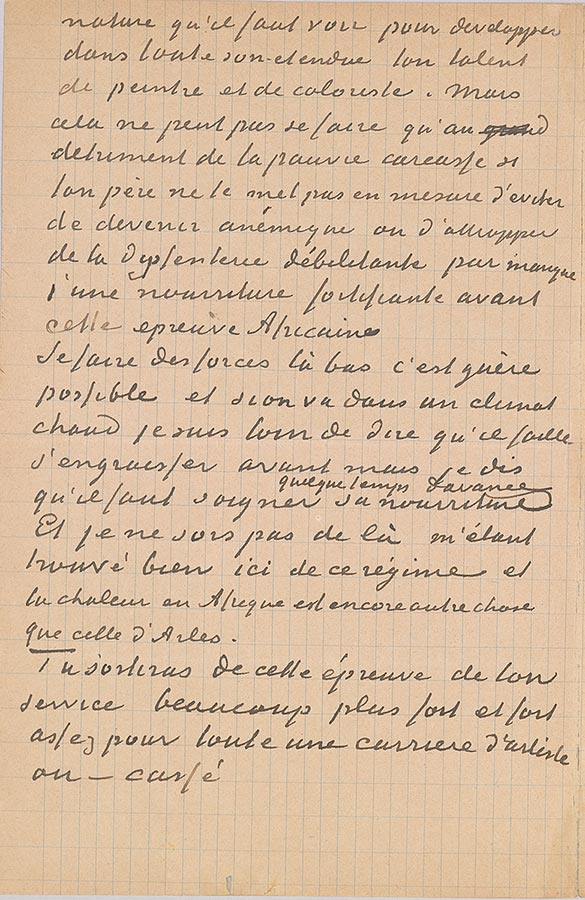 nature qu'il faut voir pour developper
dans toute son etendue ton talent
de peintre et de coloriste. Mais
cela ne peut pas se faire qu'au grand
detriment de ta pauvre carcasse si
ton père ne te met pas en mesure d'eviter
de devenir anémique ou d'attrapper
de la dyssenterie débilitante par manque
d'une nourriture fortifiante avant
cette epreuve Africaine
Se faire des forces là bas c'est guère
possible et si on va dans un climat
chaud je suis loin de dire qu'il faille
s'engraisser avant mais je dis
quelque temps d'avance
qu'il faut soigner sa nourriture
Et je ne sors pas de là m'étant
trouvé bien ici de ce régime et
la chaleur en Afrique est encore autre chose
que celle d'Arles.
Tu sortiras de cette épreuve de ton
service beaucoup plus fort et fort
assez pour toute une carriere d'artiste
ou – cassé